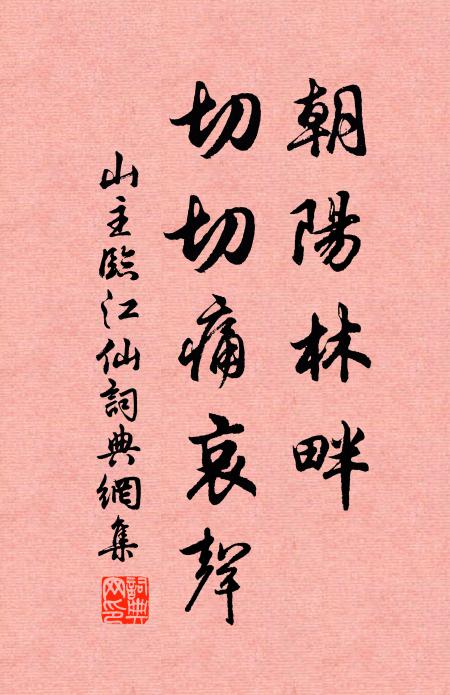 朝陽林畔
切切痛哀聲
山主臨江仙詞典網集
詞典網印